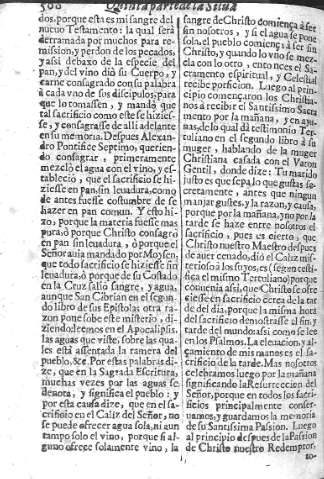 508 Quinta parte de la Selua
dos, porque esta es mi sangre del
nueuo Testamento: la qual será
derramada por muchos para re-
mission, y perdon de los pecados,
y assi debaxo de la especie del
pan, y del vino dió su Cuerpo, y
carne consagrado con su palabra
à cada vno de sus dicipulos, para
que lo tomassen, y mandò que
tal sacrificio como este se hiziese-
se, y consagrasse de alli adelante
en su memoria. Despues Alexan-
dro Pontifice Septimo, querien-
do consagrar, primeramente
mezclò el agua con el vino, y es-
tableciò, que el sacrificio se hi-
ziesse en pan, sin leuadura, como
de antes fuesse costumbre de se
hazer en pan comun. Y esto hi-
zo, porque la materia fuesse mas
pura, ò porque Christo consagrò
en pan sin leuadura, ò porque el
Señor auia mandado por Moysen,
que todo sacrificio se hiziesse sin
leuadura, ò porque de su Costado
en la Cruz salio sangre, y agua,
aunque San Cibrian en el segun-
do libro de sus Epistolas otra ra-
zon pone sobre este misterio, di-
ziendo: leemos en el Apocalipsis,
las aguas que viste, sobre las qua-
les està assentada la ramera del
pueblo, &c. Por estas palabras di-
ze, que en la Sagrada Escritura,
muchas vezes por las aguas se
denota, y significa el pueblo: y
por esta causa dize, que en el sa-
crificio en el Caliz del Señor, no
se puede ofrecer agua sola, ni aun
tampo solo el vino, porque si al-
guno ofrece solamente vino, la
sangre de Christo comiença à ser
sin nosotros, y si el agua se pone
sola, el pueblo comiença à ser sin
Christo, y quando lo vno se mez-
cla con lo otro, entonces el Sa-
cramento espiritual, y Celestial
recibe perficion. Luego al prin-
cipio començaron los Christia-
nos à recibir el Santissimo Sacra
mento por la mañana, y en ayu-
nas, de lo qual dá testimonio Ter-
tuliano en el segundo libro à su
muger, hablando de la muger
Christiana casada con el Varon
Gentil, donde dize: Tu marido
justo es que sepa lo que gustas se-
cretamente, antes que ningun
manjar gustes, y la razon, y causa,
porque por la mañana, y no por la
tarde se haze entre nosotros el
sacrificio, pues es cierto, que
Christo nuestro Maestro despues
de auer cenado, diò el Caliz mis-
terioso à los suyos, es (segun testi-
fica el mismo Tertuliano) porque
conuenia assi, que Christo se ofre
ciesse en sacrificio cerca de la tar
de del dia, porque la misma hora
del sacrificio demostrasse el fin, y
tarde del mundo: assi como se lee
en los Psalmos. La eleuacion, y al-
çamiento de mis manos es el sa-
crificio de la tarde. Mas nosotros
celebramos luego por la mañana
significando la Resurreccion del
Señor, porque en todos los sacri-
ficios principalmente conser-
uamos, y guardamos la memoria
de su Santissima Passion. Luego
al principio despues de la Passion
de Christo nuestro Redemptor,